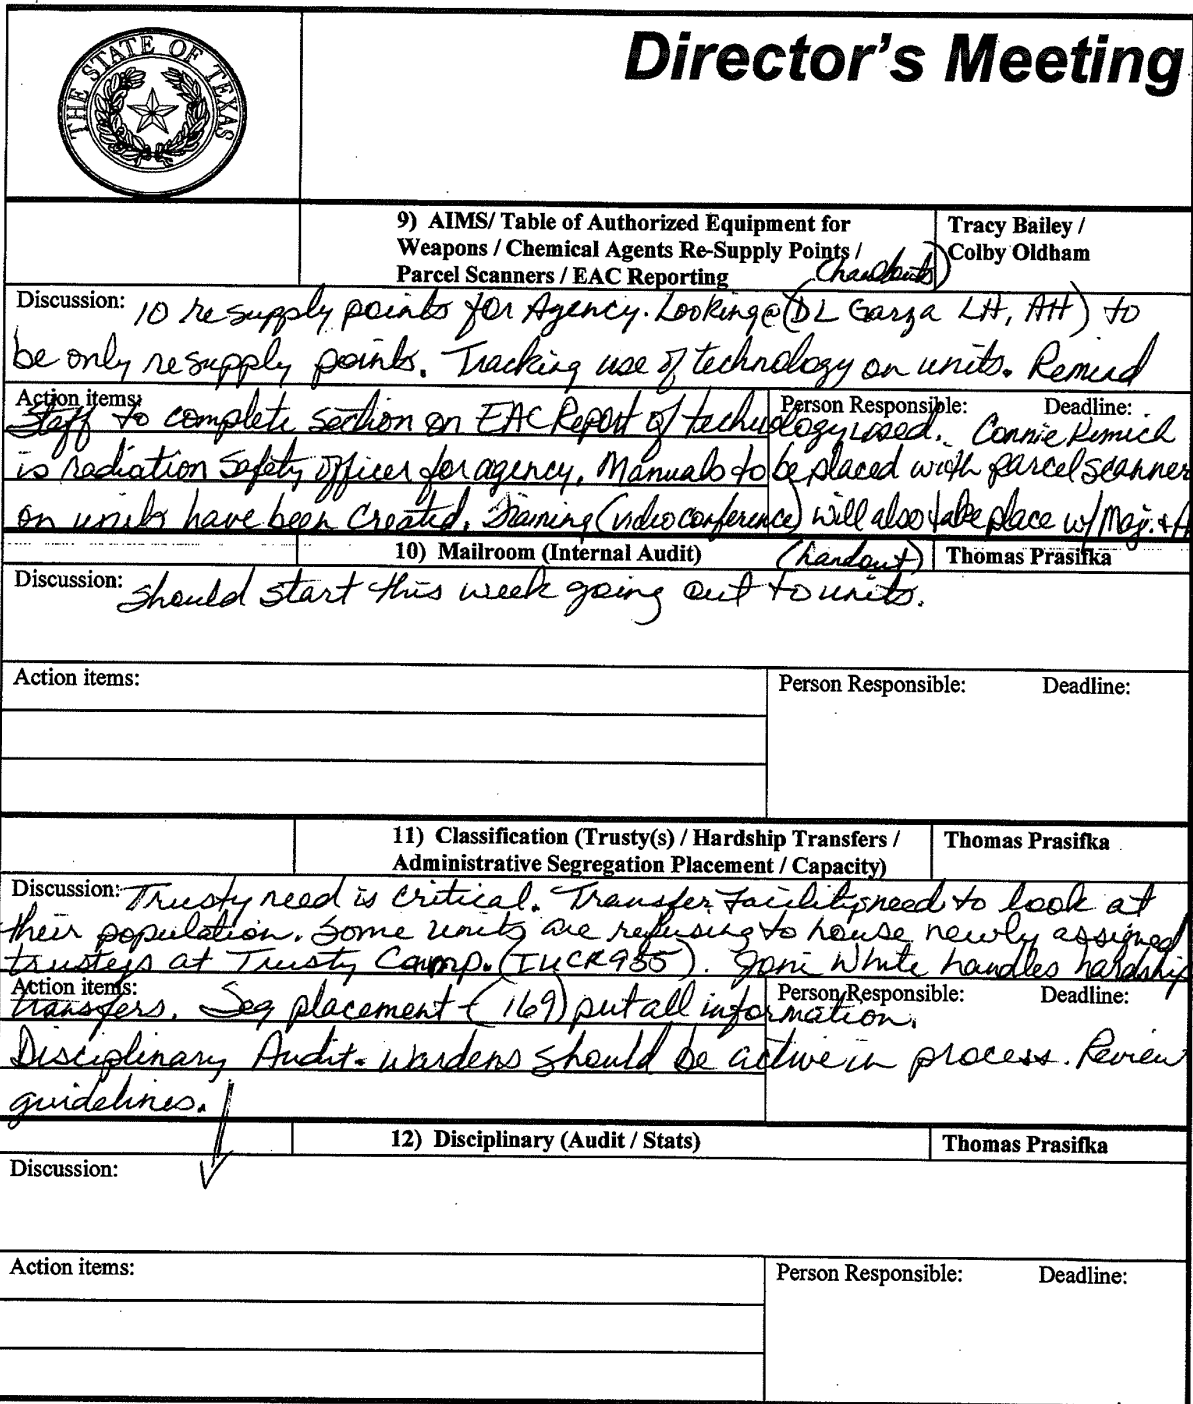 THE STATE OF TEXAS
Director's Meeting
9) AIMS/ Table of Authorized Equipment for
Weapons / Chemical Agents Re-Supply Points /
Parcel Scanners / EAC Reporting (handouts)
Tracy Bailey /
Colby Oldham
Discussion: 10 resupply points for Agency. Looking @ (DL Garza LH, AH) to
be only resupply points. Tracking use of technology on units. Remind
Action items: Person Responsible: Deadline:
staff to complete section on EAC Report of technology used. Connie
is radiation safety officer for agency. Manuals to be placed with parcel scanner
on units have been created. Training (video conference) will also take place w/ Maj. +
10) Mailroom (Internal Audit) (handout) Thomas Prasifka
Discussion: Should start this week going out to units.
Action items: Person Responsible: Deadline:
11) Classification (Trusty(s) / Hardship Transfers /
Administrative Segregation Placement / Capacity)
Thomas Prasifka
Discussion: Trusty need is critical. Transfer Facility need to look at
their population. Some units are refusing to house newly assigned
at Trusty Camp. Joni White handles hardship
Action items: Person Responsible: Deadline:
transfers. Seg placement - (169) put all information.
Disciplinary Audit - Wardens should be active in process. Review
guidelines.
12) Disciplinary (Audit / Stats) Thomas Prasifka
Discussion:
Action items: Person Responsible: Deadline: